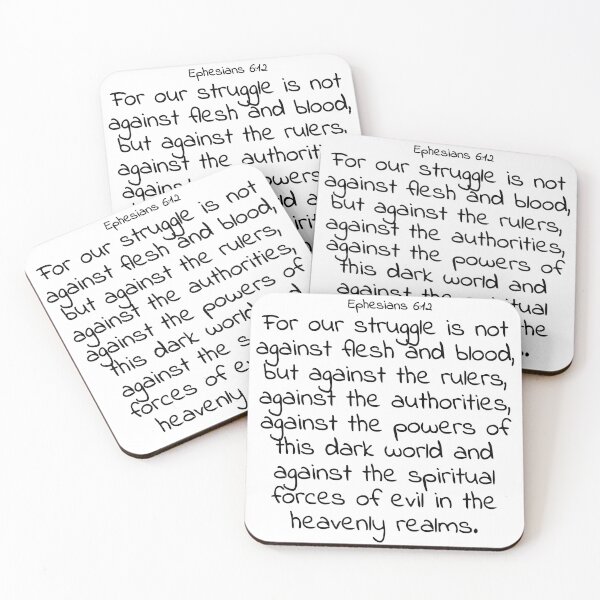 Ephesians 6:12
For our struggle is not
against flesh and blood,
but against the rulers,
against the
powers
Ephesians 6:12
For our struggle is not
against flesh and blood,
but against the rulers,
against the authorities,
against the powers of
this dark world and
against the spiritual
the
Ephesians 6:12
For our struggle is not
against flesh and blood,
but against the rulers,
against the authorities,
against the powers of
this dark world
against the
forces of
heavenly
Ephesians 6:12
For our struggle is not
against flesh and blood,
but against the rulers,
against the authorities,
against the powers of
this dark world and
against the spiritual
forces of evil in the
heavenly realms.